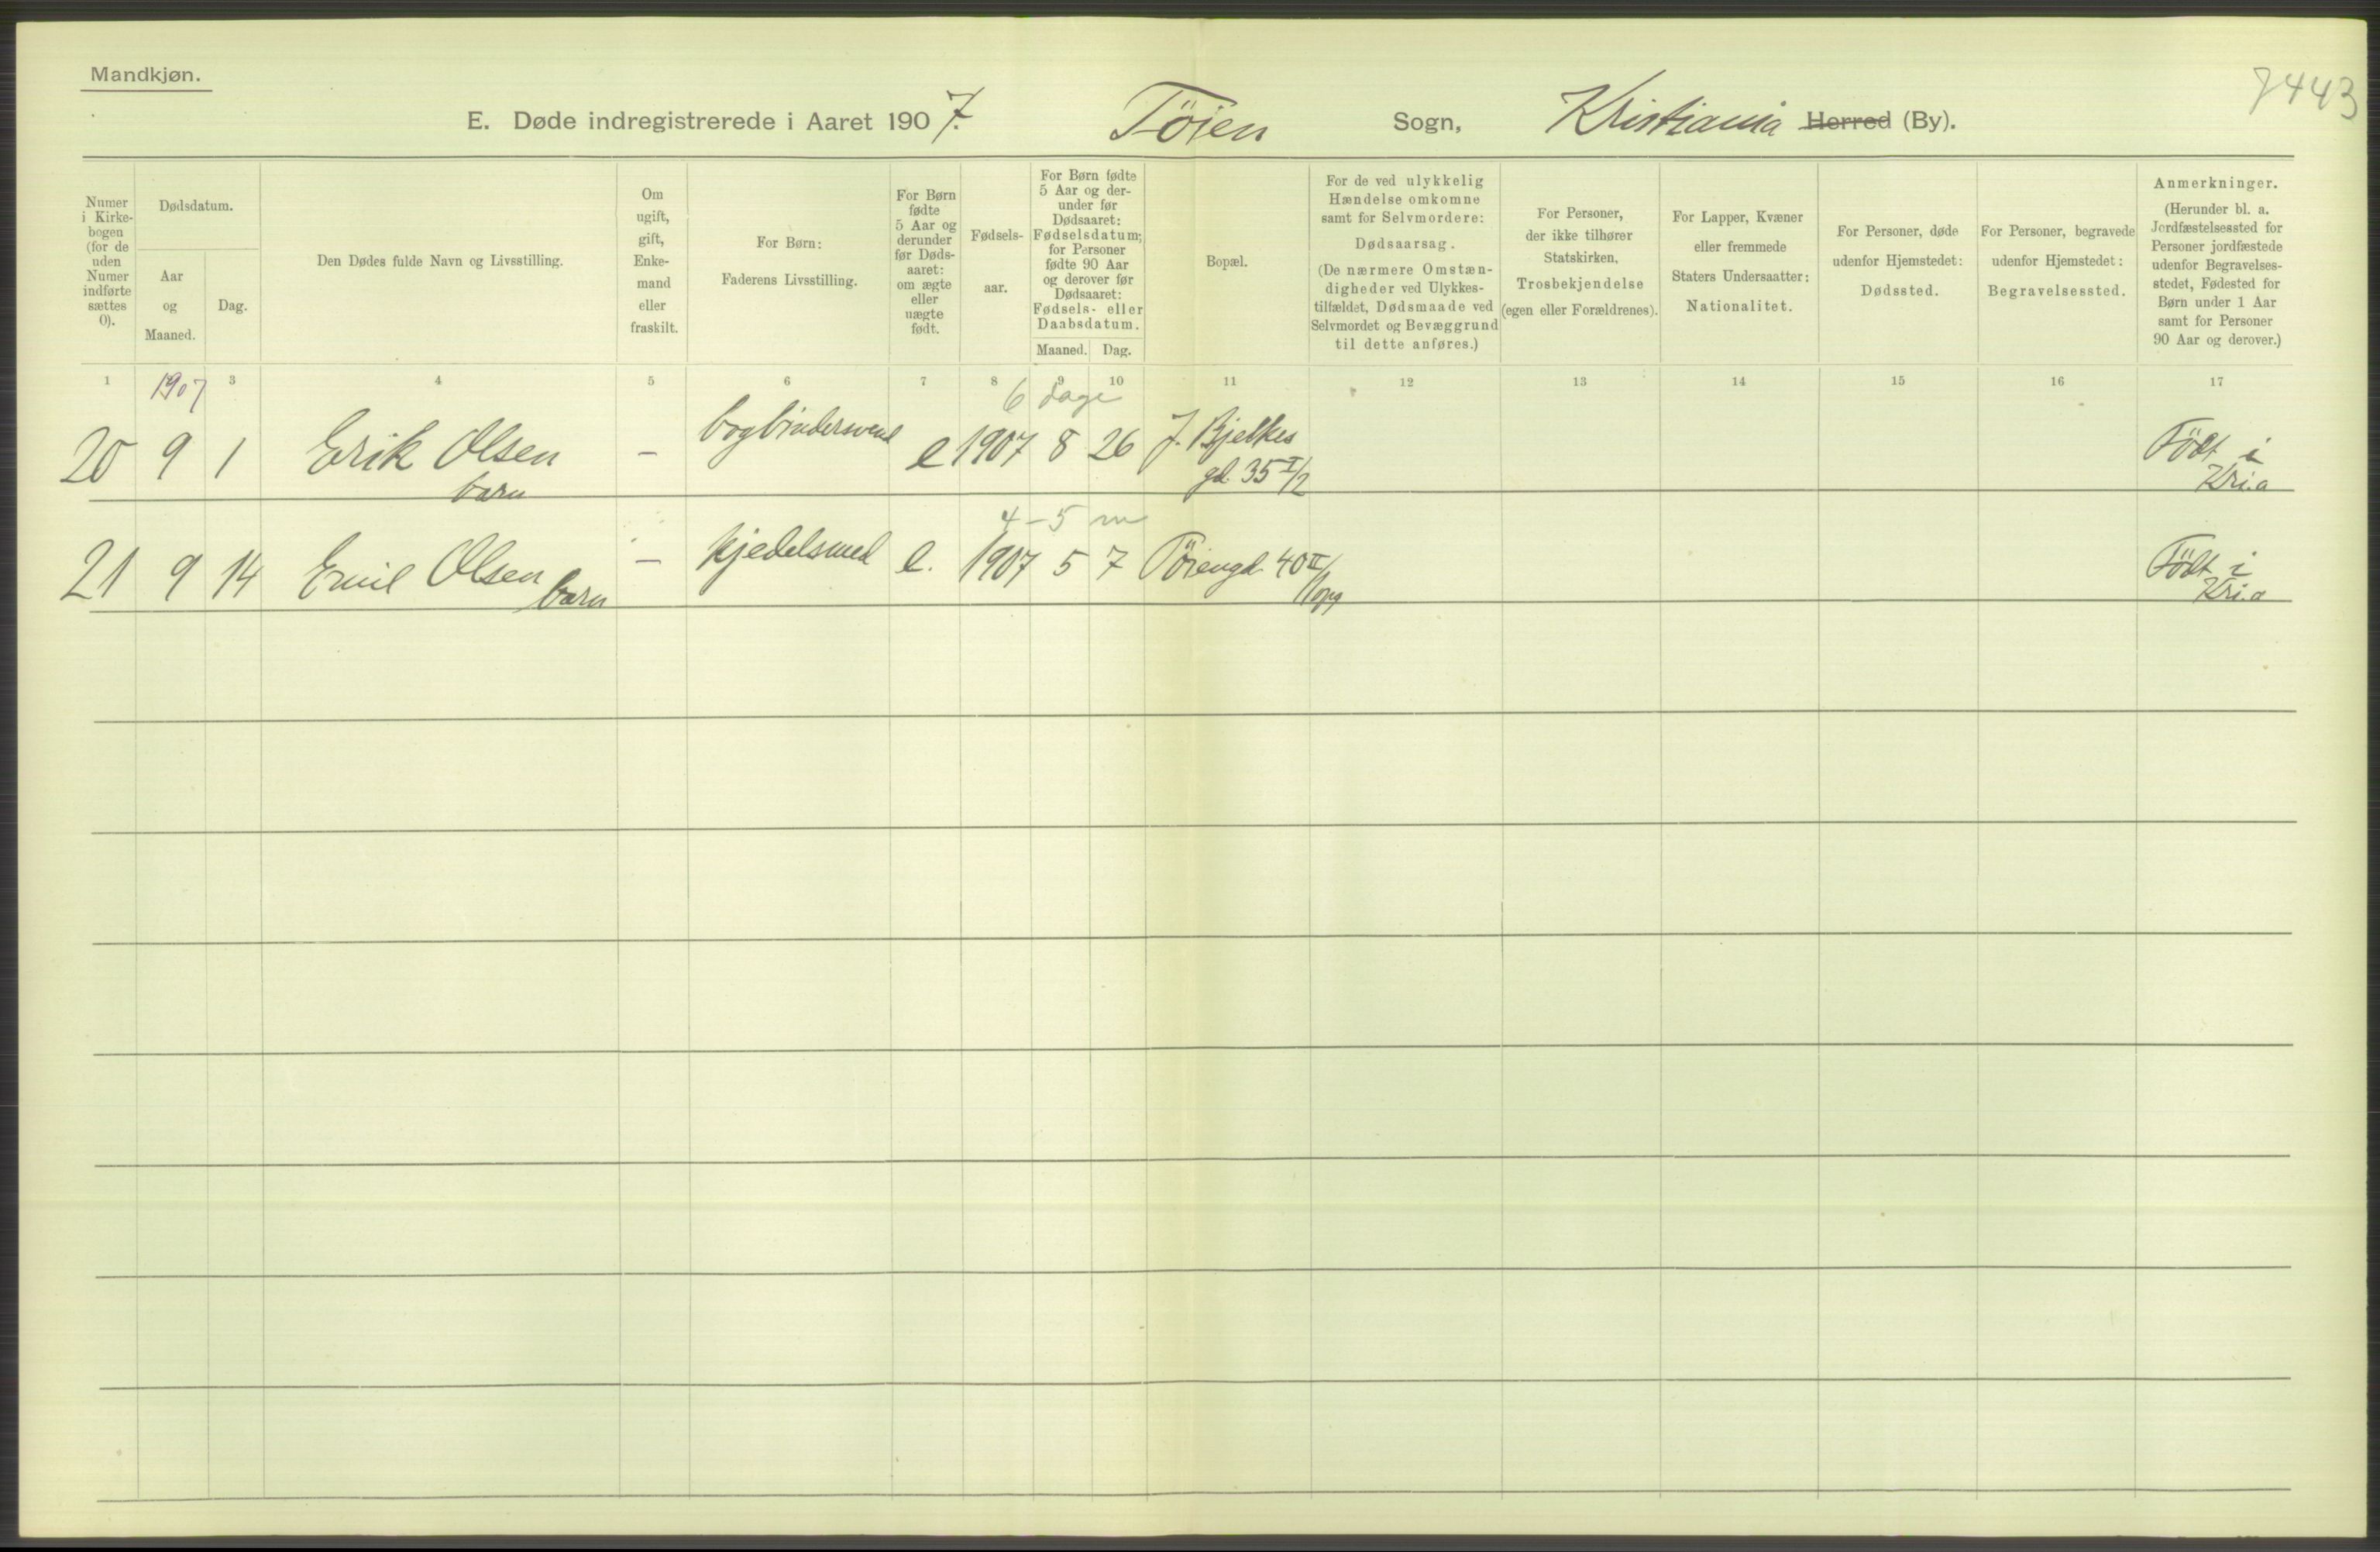 Mandkjøn.
7443
E. Døde indregistrerede i Aaret 1907. Töien Sogn, Kristiania Herred (By).
Numer
i Kirke-
bogen
(for de
uden
Numer
indførte
sættes
0).
Dødsdatum.
Aar
og
Maaned.
Dag.
Den Dødes fulde Navn og Livsstilling.
Om
ugift,
gift,
Enke-
mand
eller
fraskilt.
For Børn:
Faderens Livsstilling.
For Børn
fødte
5 Aar og
derunder
før Døds-
aaret:
om ægte
eller
uægte
født.
Fødsels-
aar.
For Børn fødte
5 Aar og der-
under før
Dødsaaret:
Fødselsdatum;
for Personer
fødte 90 Aar
og derover før
Dødsaaret:
Fødsels- eller
Daabsdatum.
Maaned. Dag.
Bopæl.
For de ved ulykkelig
Hændelse omkomne
samt for Selvmordere:
Dødsaarsag.
(De nærmere Omstæn-
digheder ved Ulykkes-
tilfældet, Dødsmaade ved
Selvmordet og Bevæggrund
til dette anføres.)
For Personer,
der ikke tilhører
Statskirken,
Trosbekjendelse
(egen eller Forældrenes).
For Lapper, Kvæner
eller fremmede
Staters Undersaatter:
Nationalitet.
For Personer, døde
udenfor Hjemstedet:
Dødssted.
For Personer, begravede
udenfor Hjemstedet:
Begravelsessted.
Anmerkninger.
(Herunder bl. a.
Jordfæstelsessted for
Personer jordfæstede
udenfor Begravelses-
stedet, Fødested for
Børn under 1 Aar
samt for Personer
90 Aar og derover.)
1 3 4 5 6 7 8 9 10 11 12 13 14 15 16 17
1907
6 dage
20 9 1 Erik Olsen – bogbindersvend e 1907 8 26 J. Bjelkes Födt i
barn gd. 35 I/2 Kri.a
4-5 m
21 9 14 Emil Olsen – Kjedelsmed e. 1907 5 7 Töiengd. 40 II/ Födt i
barn 1opg Kri.a